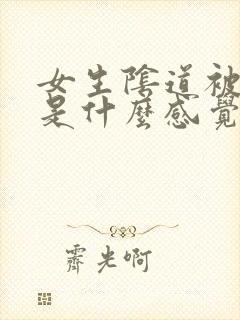 女生陰道被
是什麼感覺
霽光啊